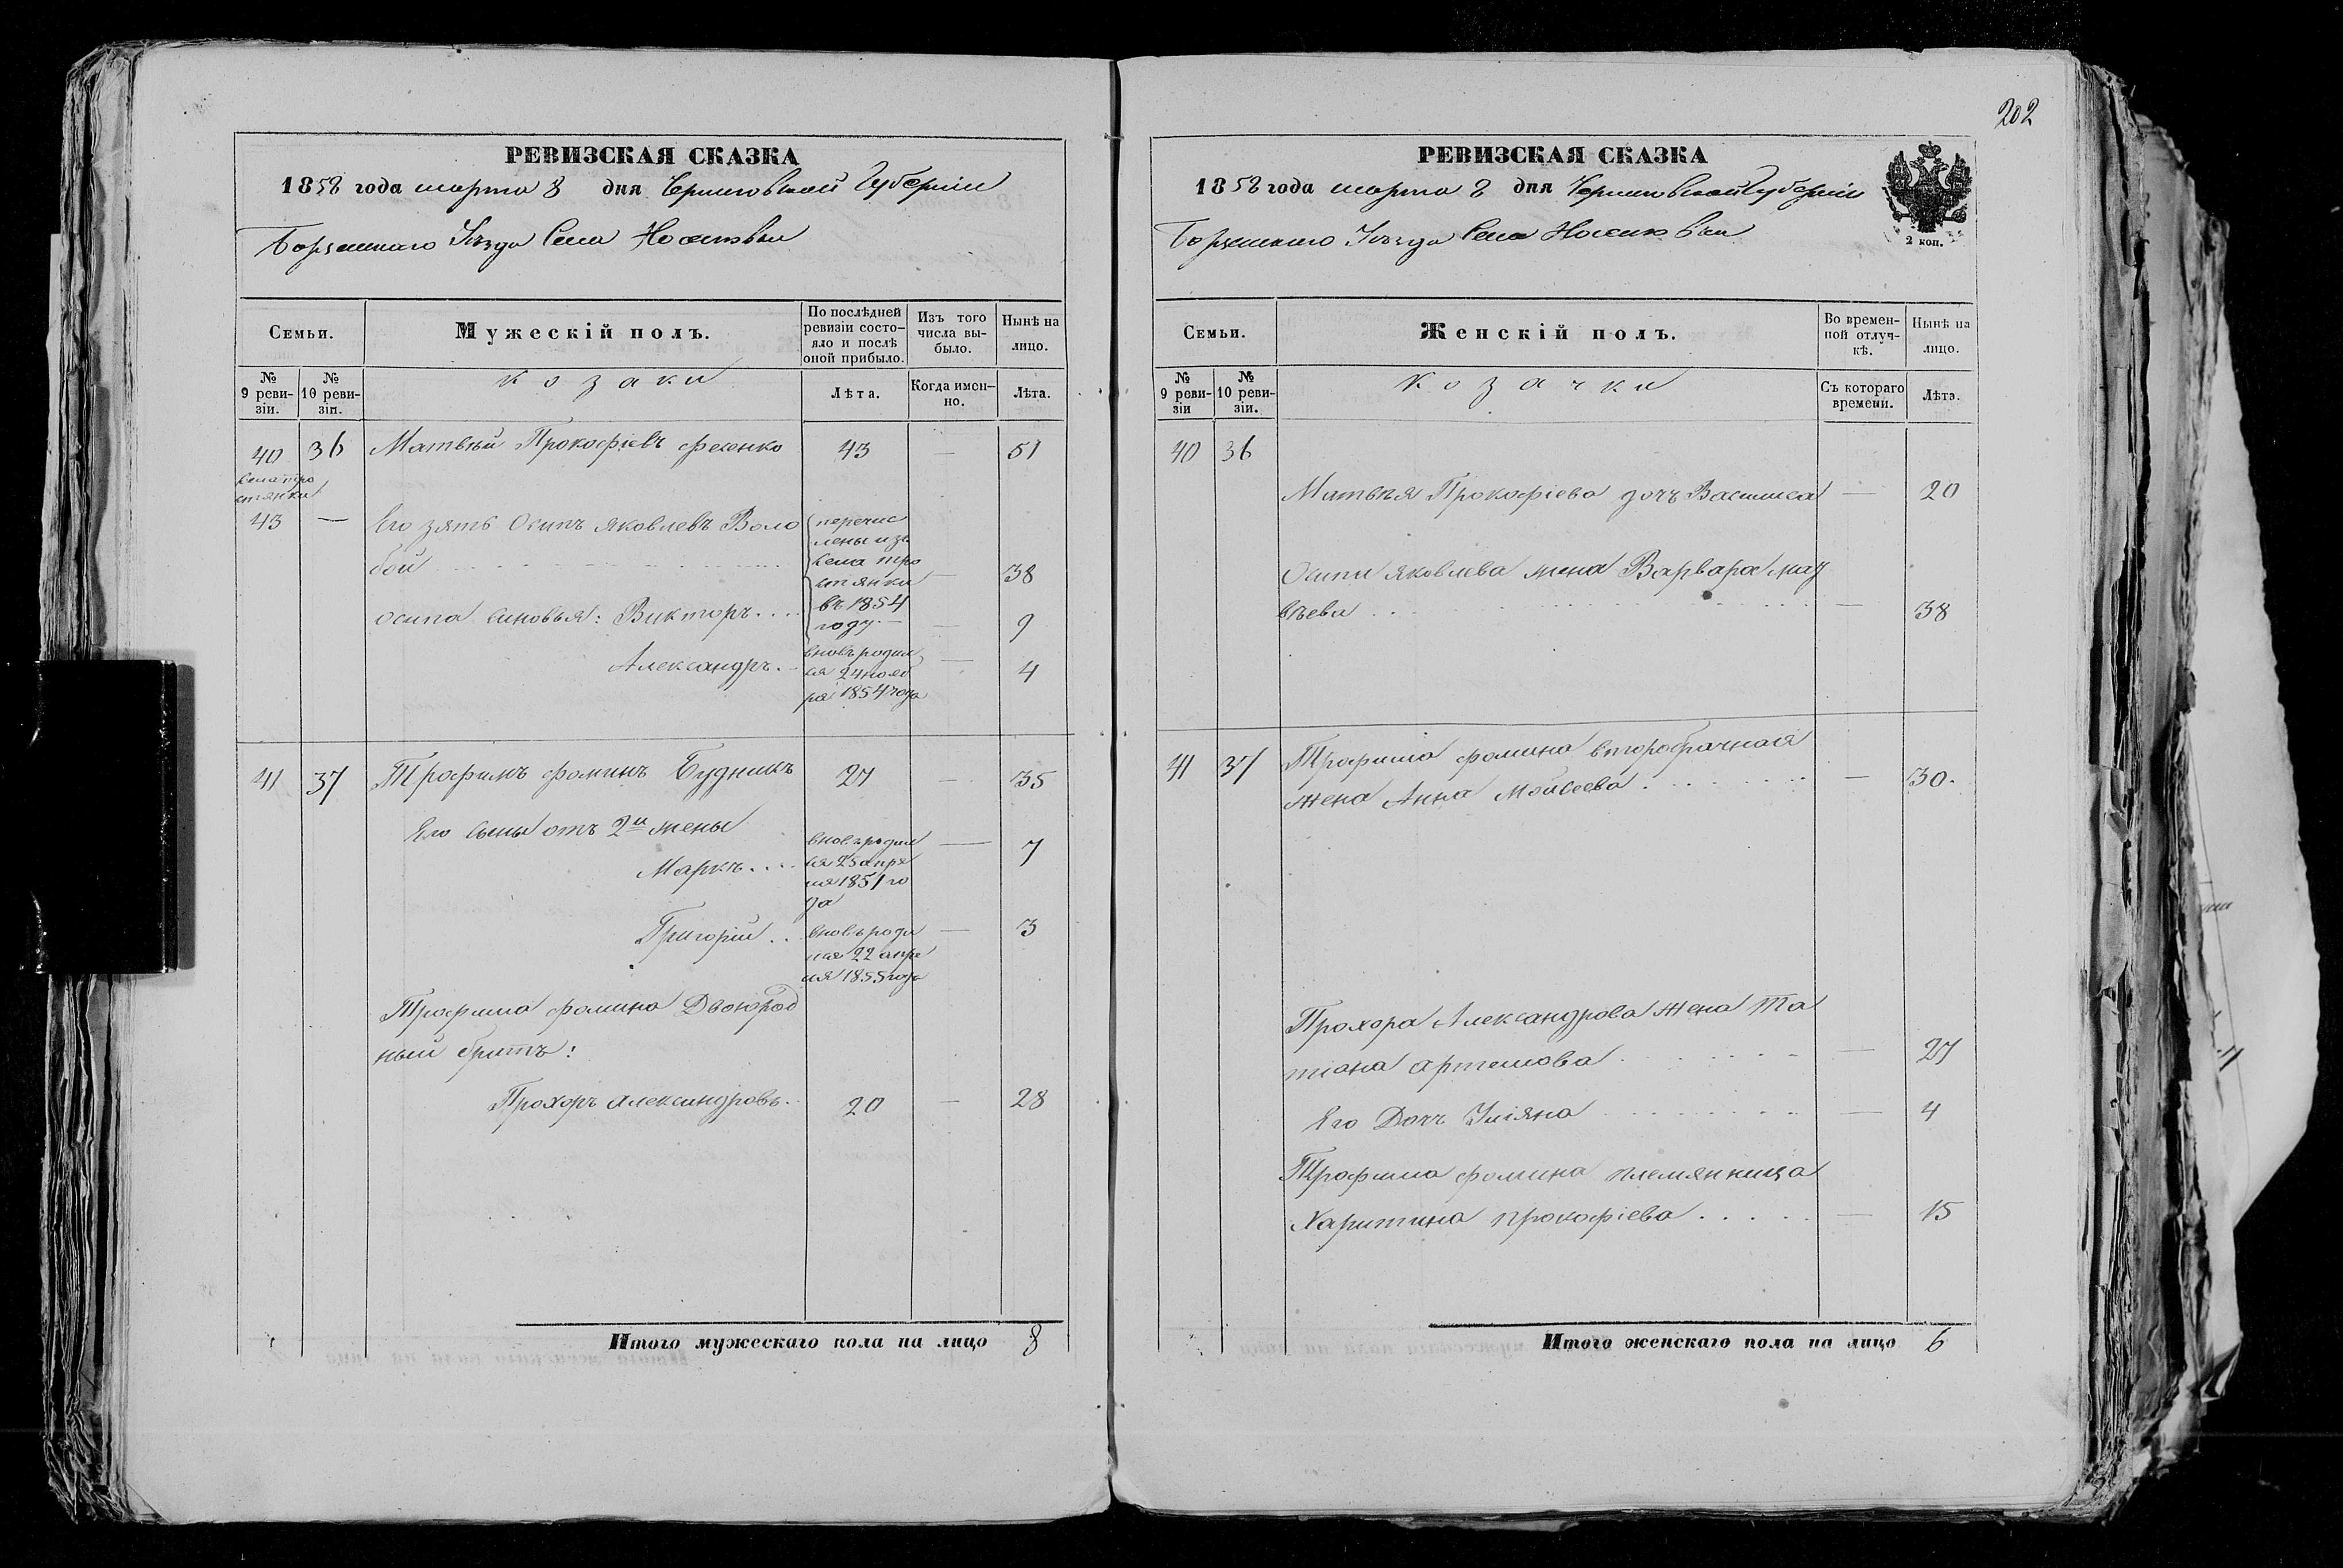 202
РЕВИЗСКАЯ СКАЗКА
1858 года марта 8 дня Черниговской Губернии
Борзенскаго Уезда Села Носовки
Семьи.
Мужескій полъ.
По послѣдней ревизіи состо-
яло и послѣ
оной прибыло.
Изъ того
числа вы-
было.
Нынѣ на
лицо.
№
9 реви-
зіи.
№
10 реви-
зіи.
козаки
Лѣта.
Когда имен-
но.
Лѣта.
40 36 Матвѣй Прокофіевъ Фесенко 43 — 51
Села тро
стянки
43 — Его зять Осипъ Яковлевъ Воло
бой 38
перечис
лены изъ
села тро
стянки
въ 1854
году
Осипа сыновья: Викторъ — 9
Александръ — 4
вновь родил
ся 24 нояб
ря 1854 года
41 37 Трофимъ Фоминъ Будникъ 27 — 35
Его сыны отъ 2й жены
Маркъ — 7
вновь родил
ся 25 апре
ля 1851 го
да
Григорій — 3
вновь роди
лся 22 апре
ля 1855 года
Трофима Фомина Двоюрод
ный братъ:
Прохоръ Александровъ 20 — 28
Итого мужескаго пола на лицо 8
РЕВИЗСКАЯ СКАЗКА
1858 года марта 8 дня Черниговской Губернии
Борзенскаго Уезда Села Носовки
2 коп.
Семьи.
Женскій полъ.
Во времен-
ной отлуч-
кѣ.
Нынѣ на
лицо.
№
9 реви-
зіи
№
10 реви-
зіи.
козачки
Съ котораго
времени.
Лѣта.
40 36
Матвѣя Прокофіева дочь Василиса — 20
Осипа Яковлева жена Варвара Мат
вѣева — 38
41 37 Трофима Фомина второбрачная
жена Анна Моисеева — 30.
Прохора Александрова жена Та
тіана Артемова — 27
Его Дочь Уліяна — 4
Трофима Фомина племянница
Харитина Прокофіева — 15
Итого женскаго пола на лицо 6